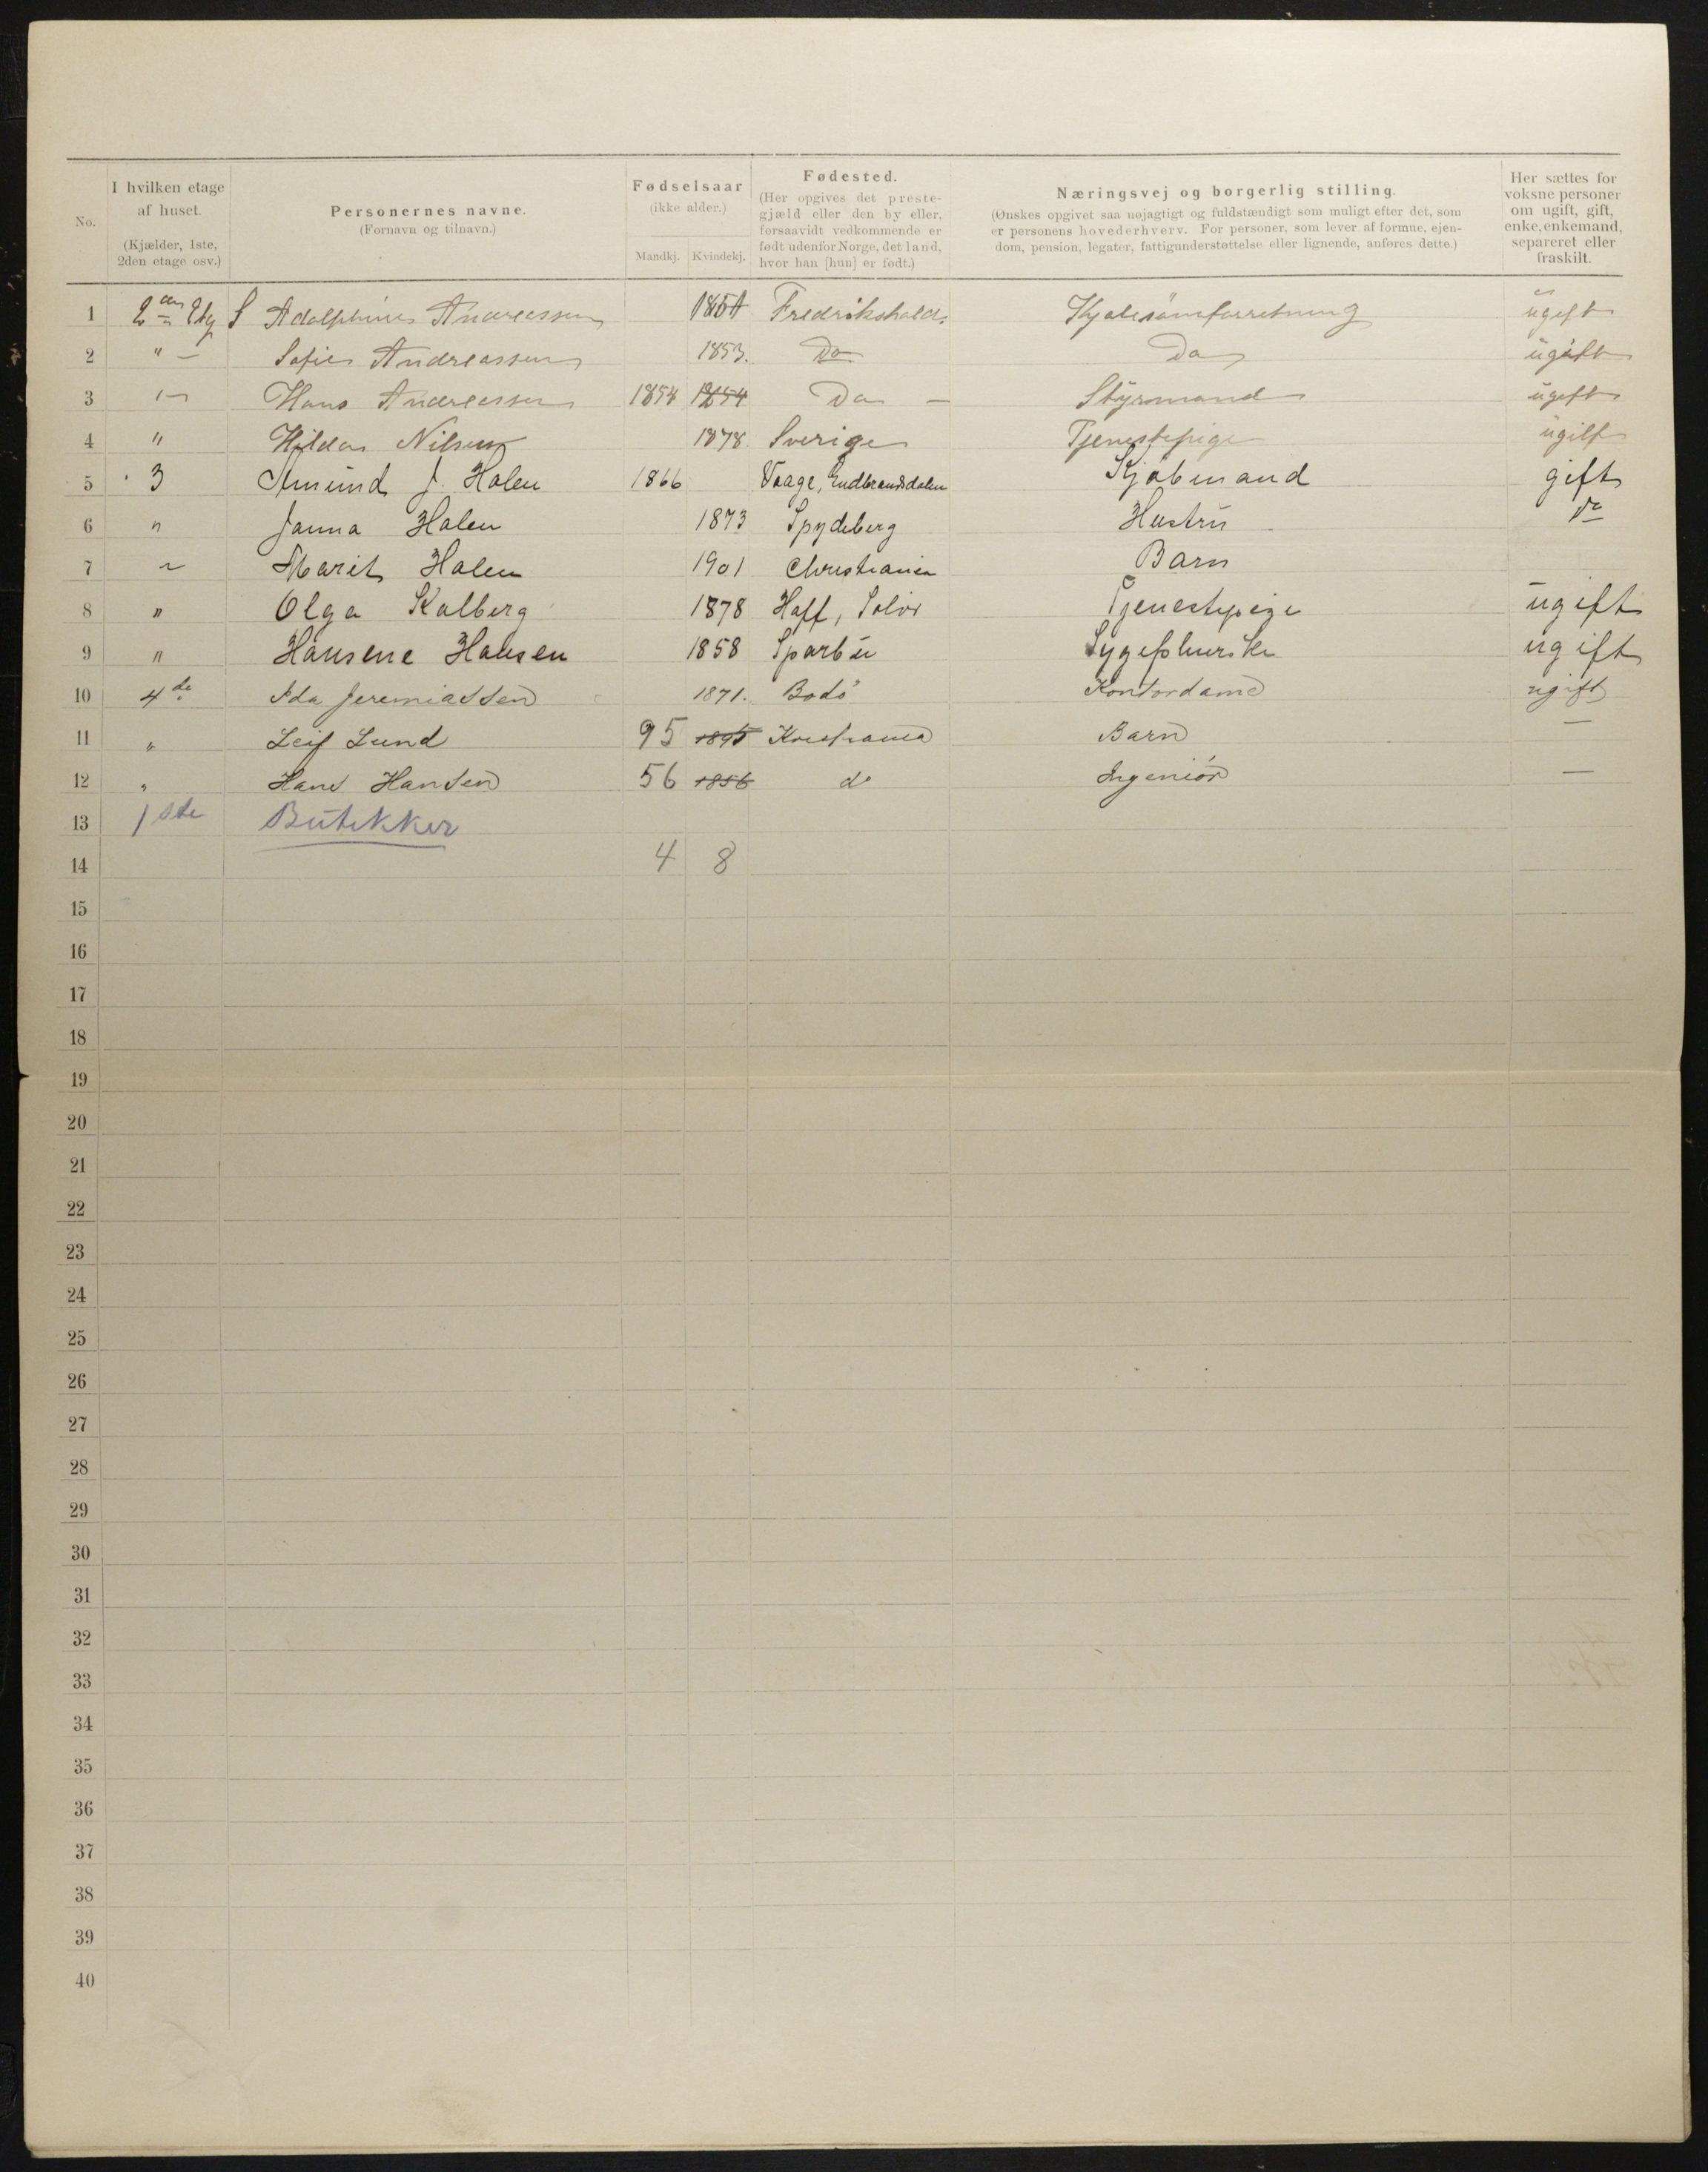 No.
I hvilken etage af huset. (Kjælder, 1ste, 2den etage osv.)
Personernes navne. (Fornavn og tilnavn.)
Fødselsaar (ikke alder.)
Mandkj. Kvindekj.
Fødested. (Her opgives det prestegjæld eller den by eller, forsaavidt vedkommende er født udenfor Norge, det land, hvor han [hun] er født.)
Næringsvej og borgerlig stilling. (Ønskes opgivet saa nøjagtigt og fuldstændigt som muligt efter det, som er personens hovederhverv. For personer, som lever af formue, ejendom, pension, legater, fattigunderstøttelse eller lignende, anføres dette.)
Her sættes for voksne personer om ugift, gift, enke, enkemand, separeret eller fraskilt.
1 2den Etg Adolphine Andreassen Fredrikshald. Kjolesømforretning ugift
2 " — Sofie Andreassen 1853. Do Do ugift
3 Hans Andreassen 1854 1854 Do — Styrmand ugift
4 " Hilda Nilsen 1878 Sverige Tjenestepige ugift
5 3 Amund J. Holen 1866 Vaage, Gudbrandsdalen Kjøbmand gift
6 " Janna Holen 1873 Spydeberg Hustru do
7 Marit Holen 1901 Christiania Barn
8 " Olga Kalberg 1878 Hoff, Solør Tjenestepige ugift
9 " Hansene Hansen 1858 Sparbu Sygepleierske ugift
10 4de Ida Jeremiassen 1871. Bodø Kontordame ugift
11 " Leif Lund 95 1895 Kristiania Barn —
12 " Hans Hansen 56 1856 do Ingeniør —
13 1ste Butikker
14 4 8
15
16
17
18
19
20
21
22
23
24
25
26
27
28
29
30
31
32
33
34
35
36
37
38
39
40